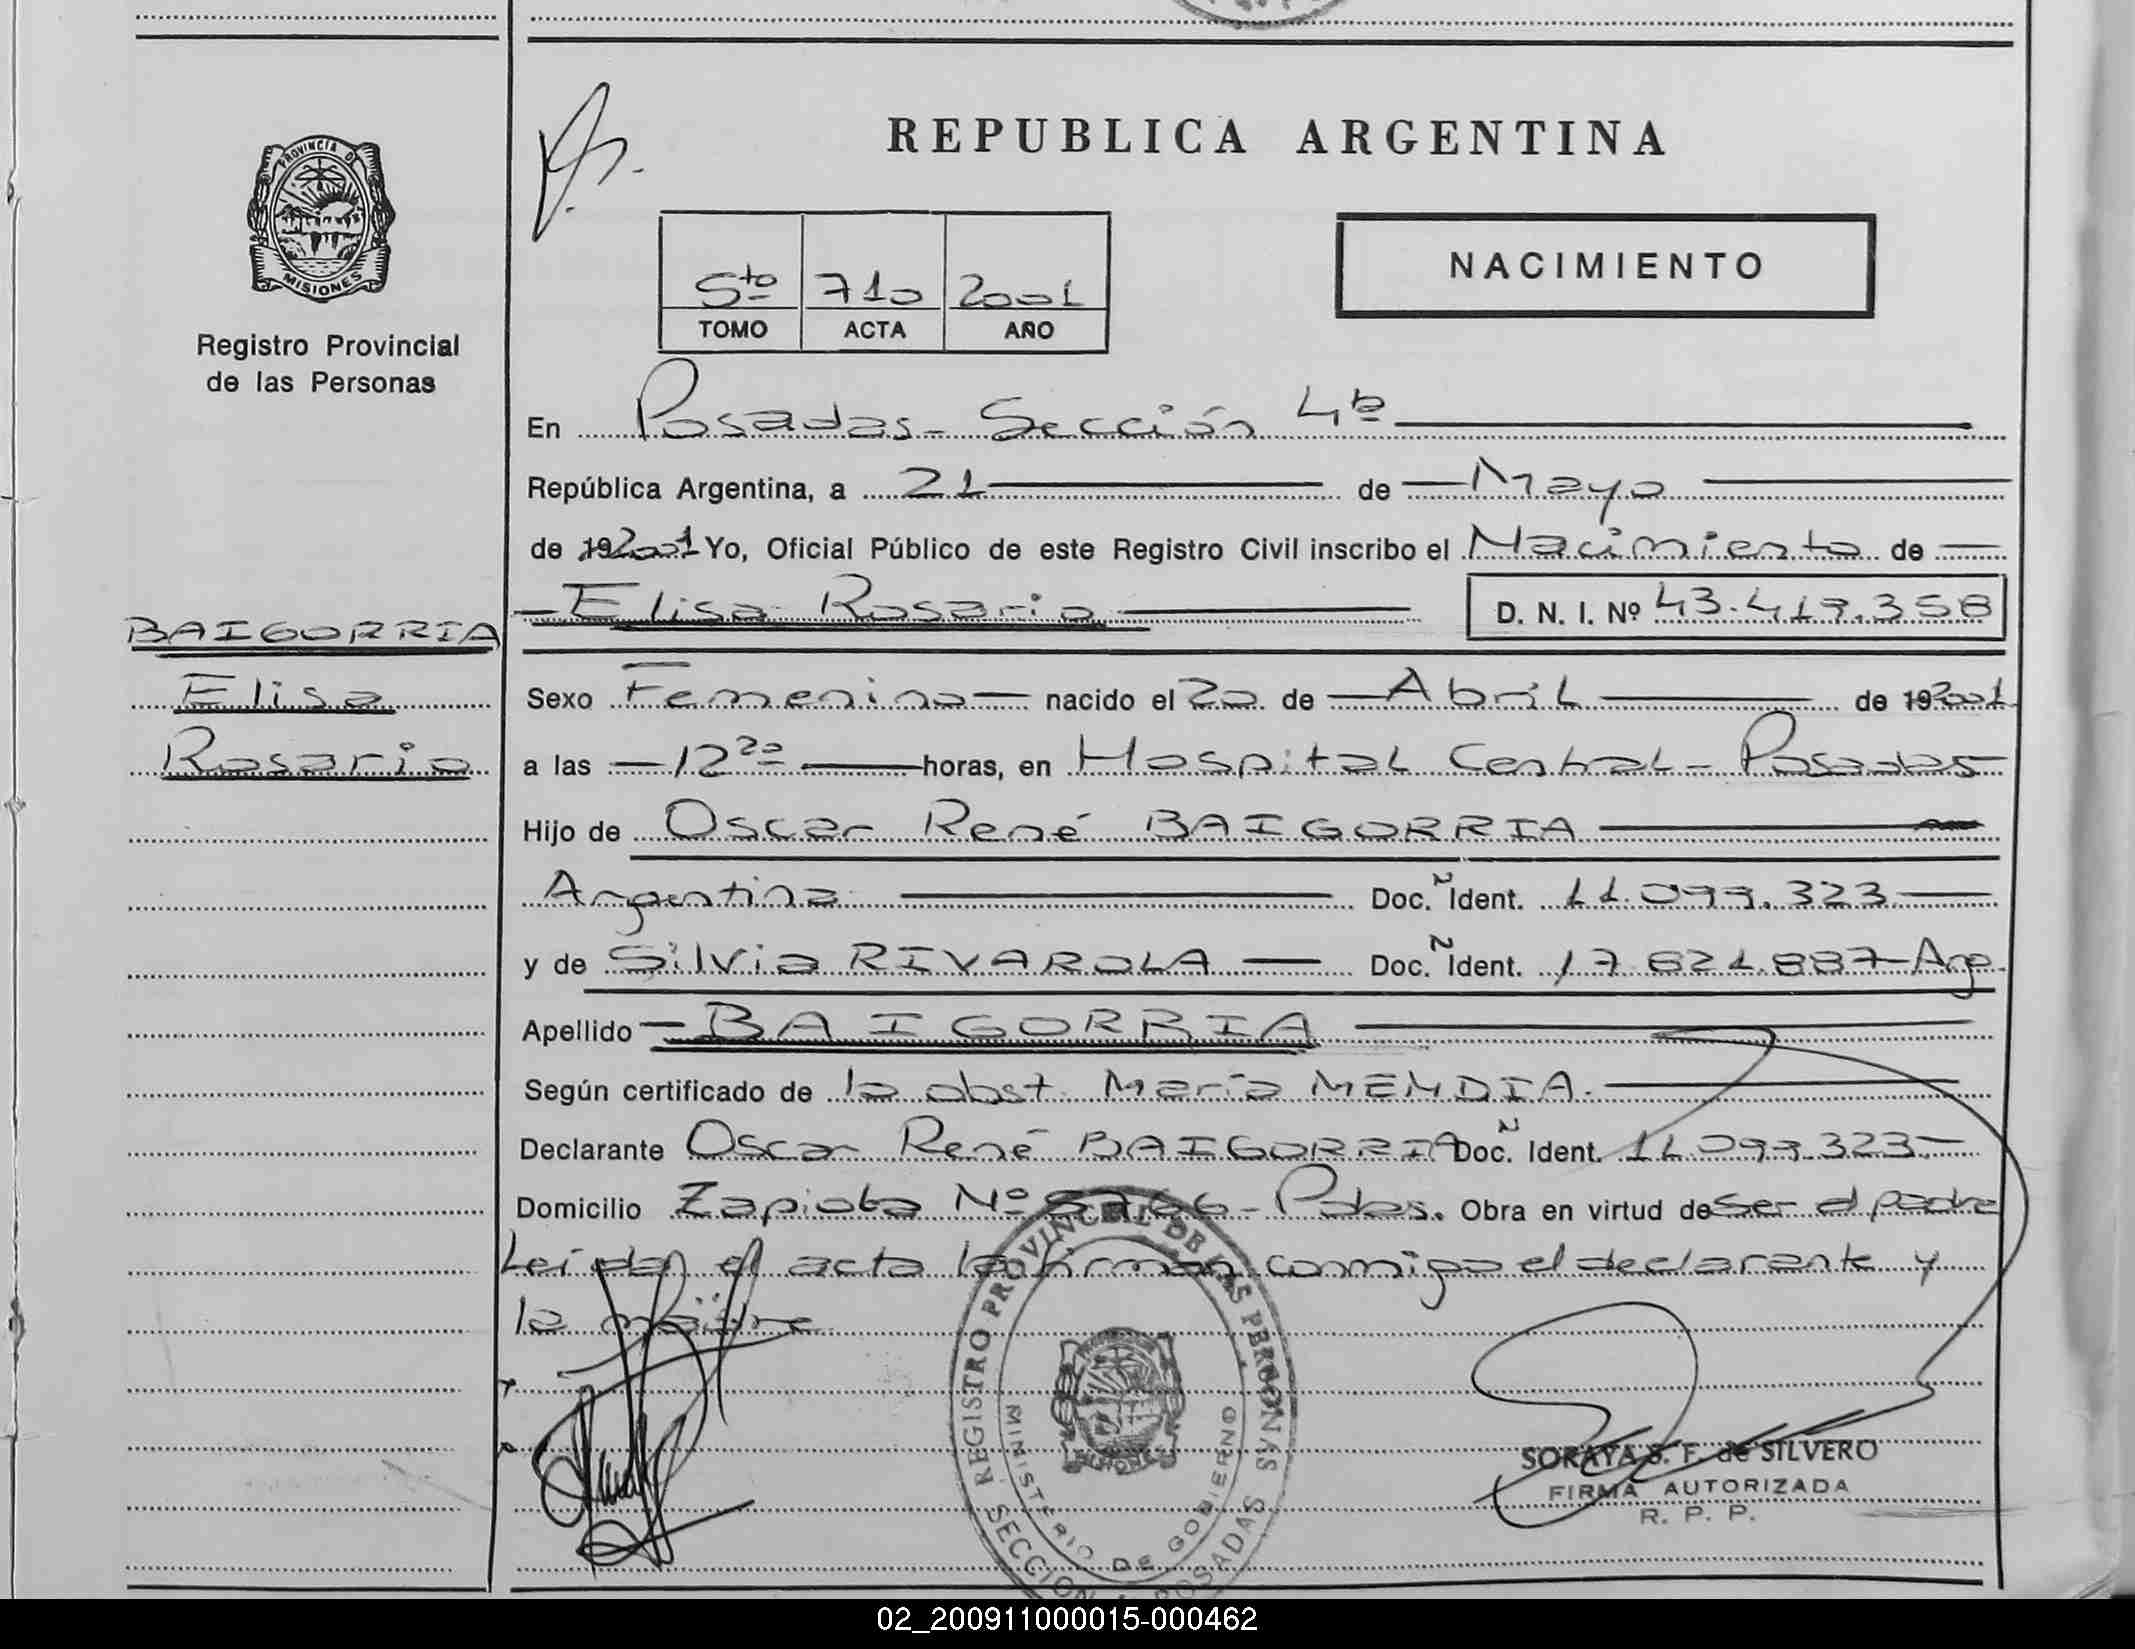 PROVINCIA DE
MISIONES
Registro Provincial
de las Personas
BAIGORRIA
Elisa
Rosario
REPUBLICA ARGENTINA
5to 710 2001
TOMO ACTA AÑO
NACIMIENTO
En Posadas - Sección 4ª
República Argentina, a 21 de Mayo
de 192001 Yo, Oficial Público de este Registro Civil inscribo el Nacimiento de
Elisa Rosario D. N. I. Nº 43.419.358
Sexo Femenino nacido el 20 de Abril de 192001
a las 12 20 horas, en Hospital Central - Posadas
Hijo de Oscar René BAIGORRIA
Argentina Doc. N Ident. 11.099.323
y de Silvia RIVAROLA Doc. N Ident. 17.621.887 - Arg.
Apellido BAIGORRIA
Según certificado de la obst. María MENDIA.
Declarante Oscar René BAIGORRIA Doc. N Ident. 11.099.323
Domicilio Zapiola Nº - Pdas. Obra en virtud de ser el padre
Leída el acta la firman conmigo el declarante y
la madre
REGISTRO PROVINCIAL DE LAS PERSONAS
MINISTERIO DE GOBIERNO
SECCION POSADAS
SORAYA S. F. de SILVERO
FIRMA AUTORIZADA
R. P. P.
02_200911000015-000462